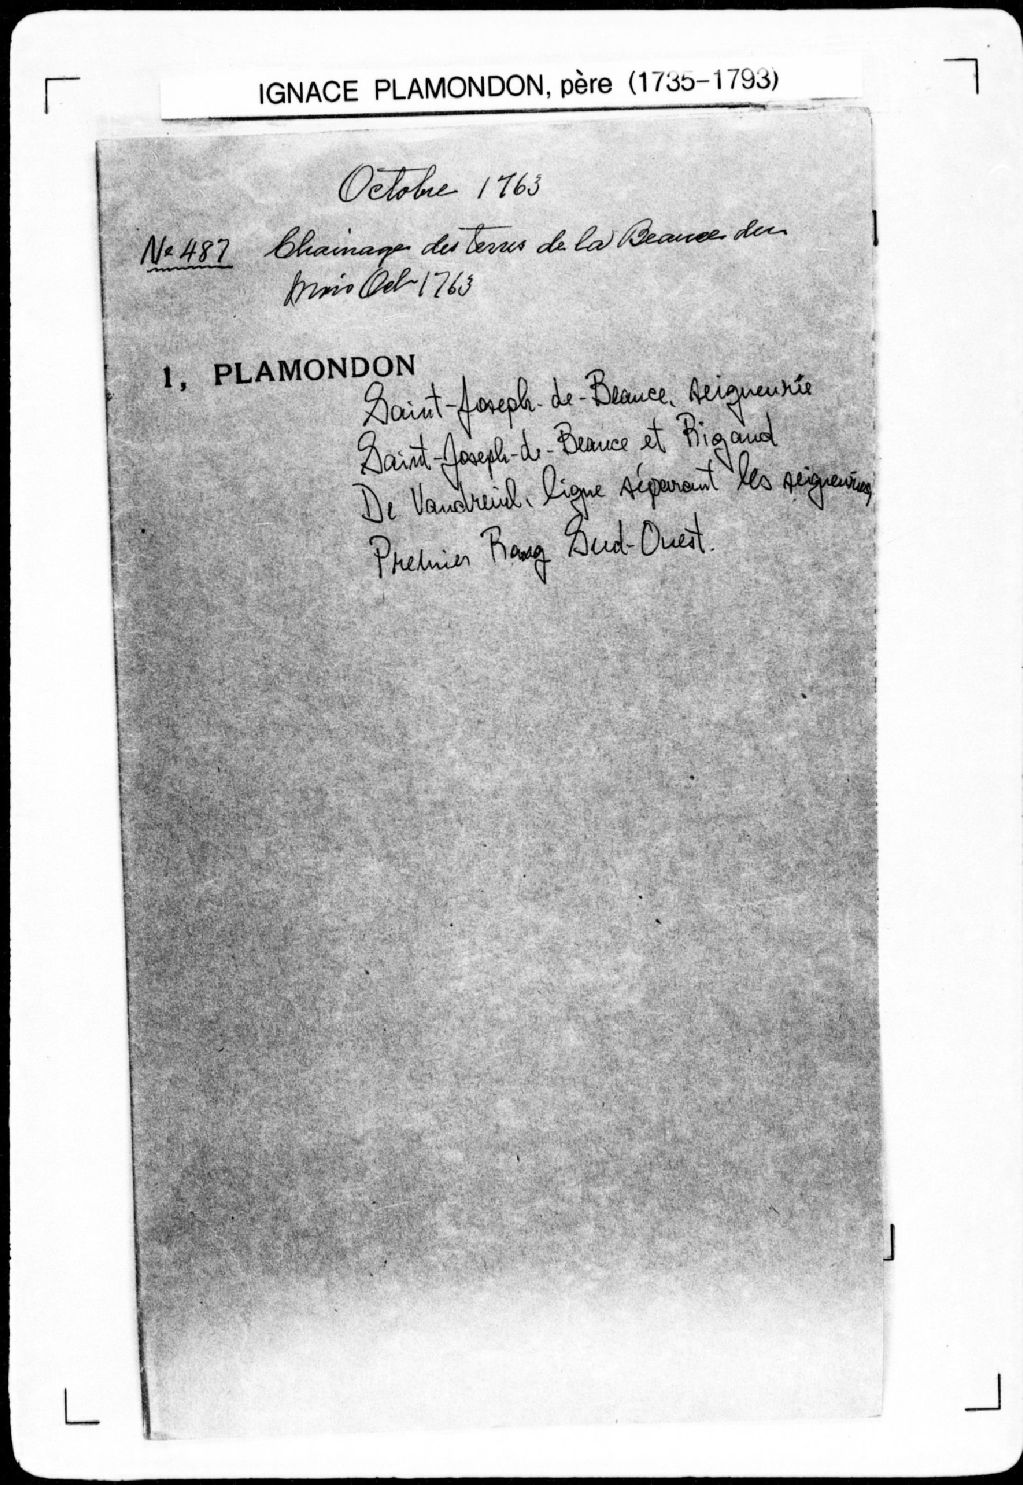 IGNACE PLAMONDON, père (1735-1793)
Octobre 1763
No 487 Chainage des terres de la Beauce du
mois Oct 1763
1, PLAMONDON
Saint-Joseph-de-Beauce, seigneurie
Saint-Joseph-de-Beauce et Rigaud
De Vaudreuil, ligne séparant les seigneuries,
Premier Rang Sud-Ouest.